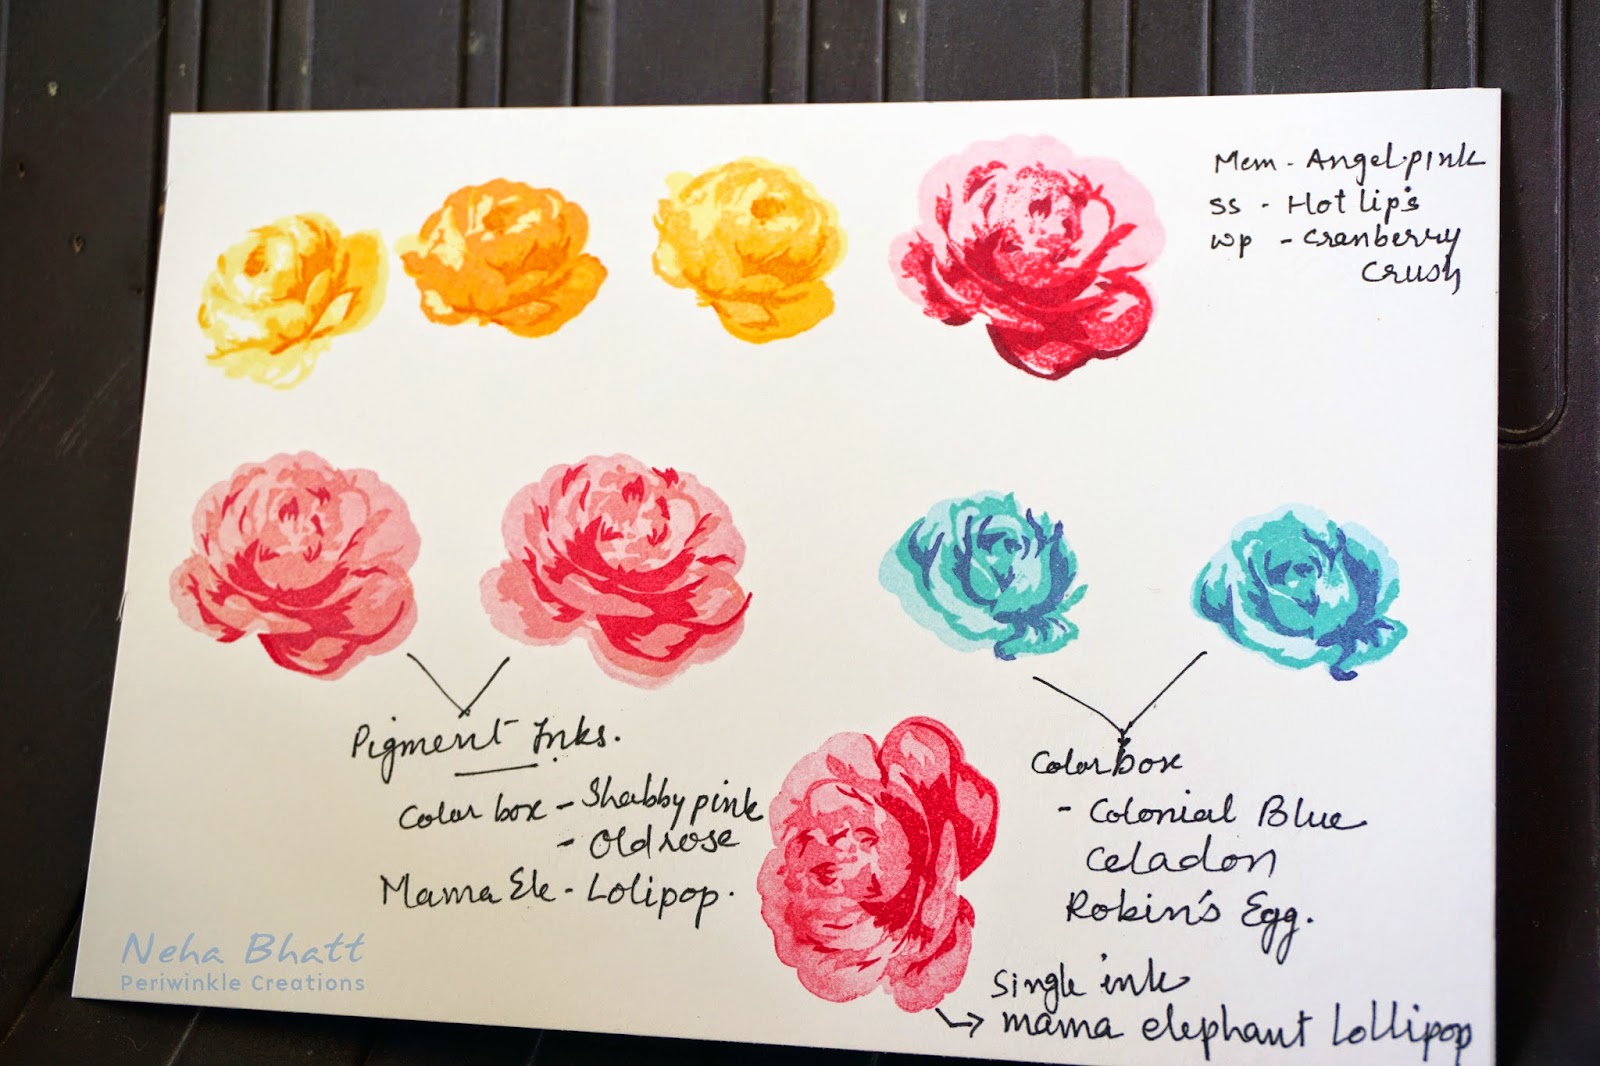 Mem - Angel pink
SS - Hot lip's
WP - Cranberry
Crush
Pigment Inks.
Color box - Shabby pink
- Old rose
Mama Ele - Lolipop.
Color box
- Colonial Blue
Celadon
Robin's Egg.
Single ink
→ mama elephant Lollipop
Neha Bhatt
Periwinkle Creations